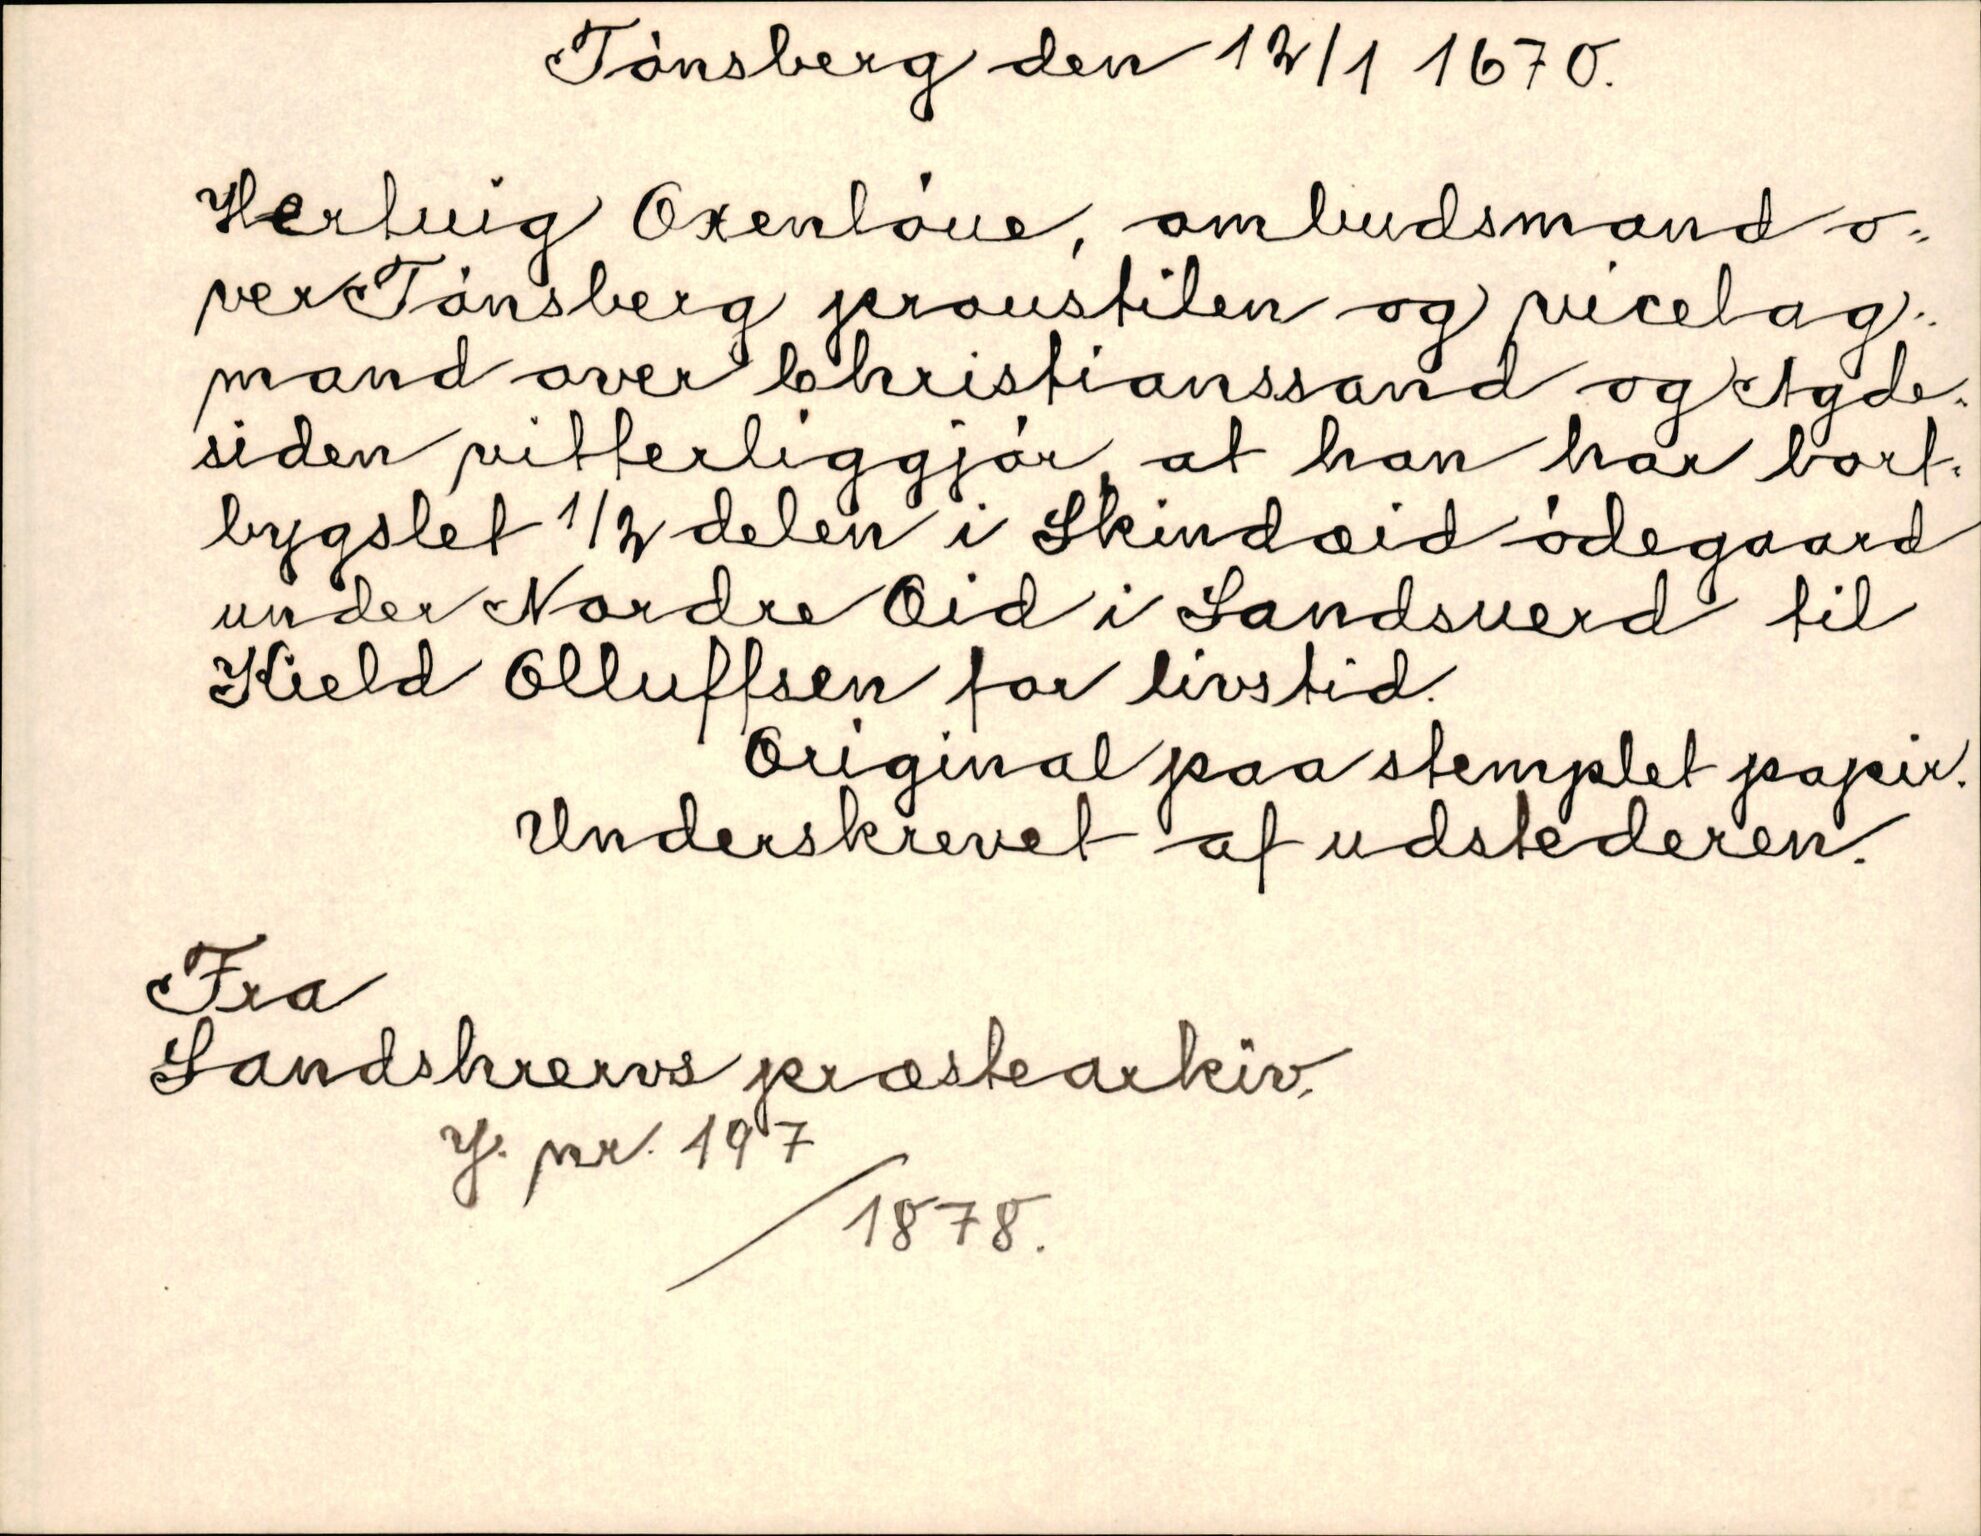 Tónsberg den 12/1 1670.
Hertuig Oxenlóue, ombudsmand o-
ver Tónsberg proustilen og vicelag-
mand over Christianssand og Agde-
siden vitterliggjór, at han har bort-
bygslet 1/2 delen i Skindæid ódegaard
under Nordre Eid i Sandsuerd til
Kield Olluffsen for livstid.
Original paa stemplet papir.
Underskrevet af udstederen.
Fra
Sandshrervs præstearkiv.
J. nr. 197
/ 1878.